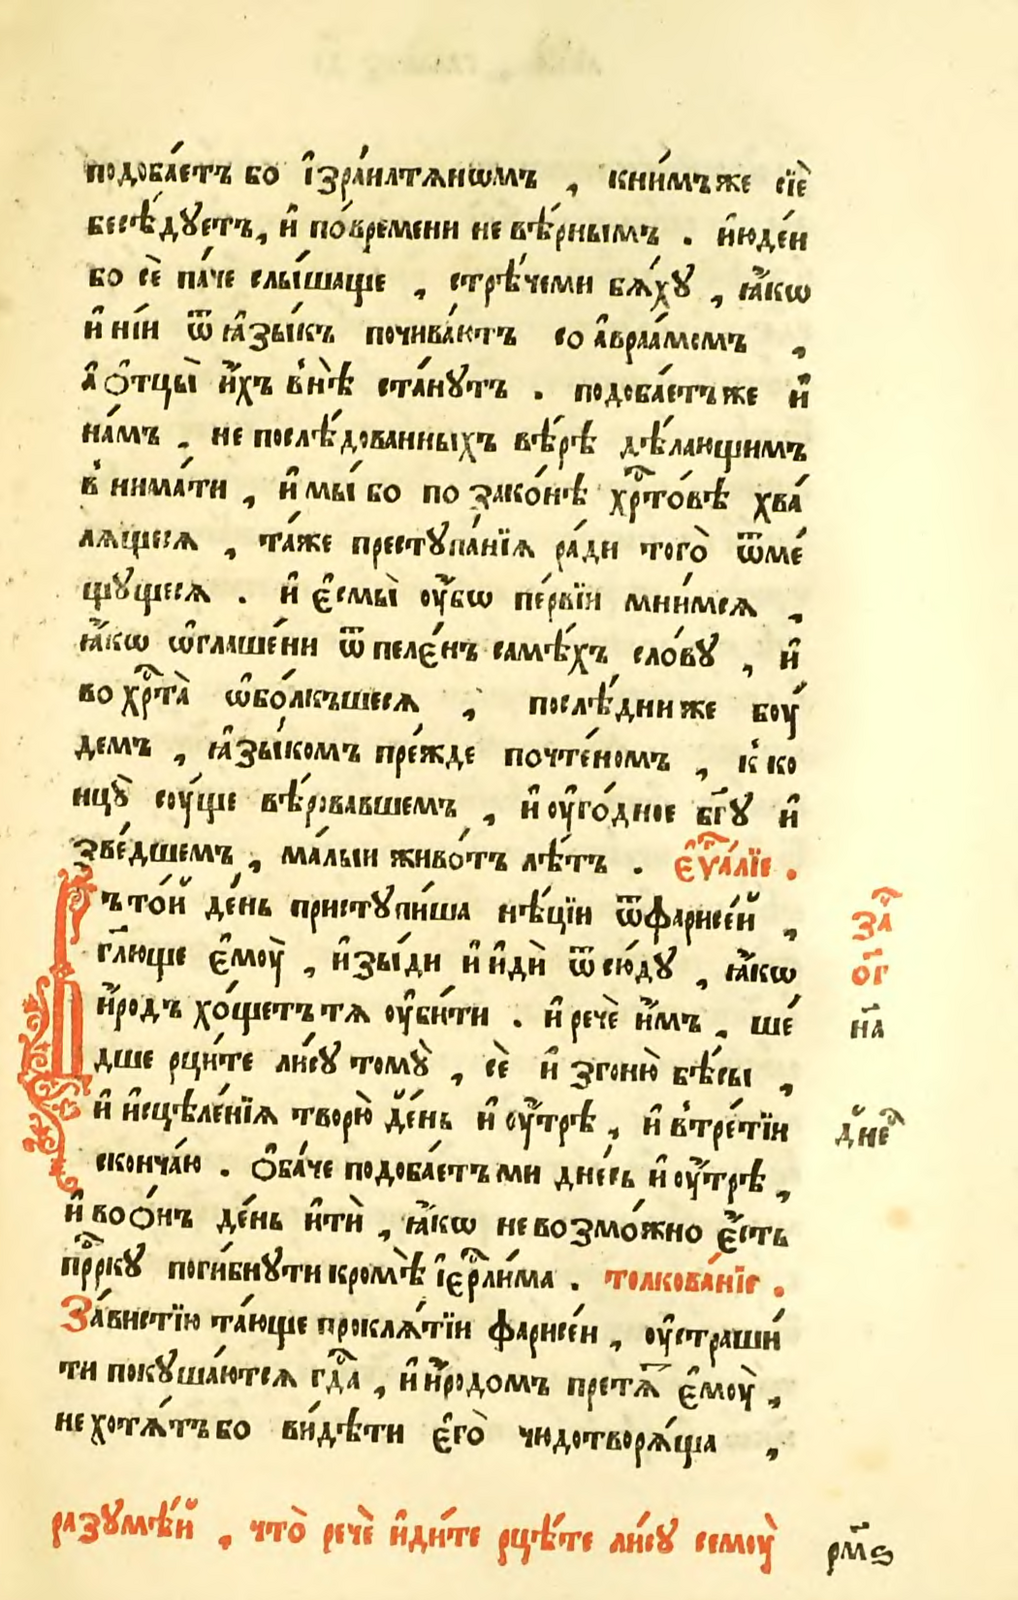 подоба́етъ бо і҆зра́илтѧнѡмъ , кни́мъже сїѐ
бесѣ́дꙋетъ, и҆ по́времени не вѣ́рнымъ . и҆юде́и
бо сѐ па́че слы́шаще , стрѣ́чеми бѧ́хꙋ , ꙗ҆́кѡ
и҆ ні́и ѿ ꙗ҆зы́къ почива́ютъ со а҆враа́момъ ,
а҆ ѻ҆тцы̀ и҆́хъ внѣ̀ ста́нꙋтъ . подоба́етъже и҆
на́мъ , не послѣ́дованныхъ вѣ́рѣ дѣ́лающимъ
внима́ти , и҆ мы́ бо по зако́нѣ хрⷭ҇то́вѣ хва́
лѧщесѧ , та́же престꙋпа́нїѧ ра́ди того̀ ѿме́
щꙋщесѧ . и҆ є҆смы̀ оу҆́бѡ пе́рвїи мни́мсѧ ,
ꙗ҆́кѡ ѡ҆глаше́ни ѿ пеле́нъ самѣ́хъ сло́вꙋ , и҆
во хрⷭ҇та̀ ѡ҆бо́лкъшесѧ , послѣ́дниже боу́
демъ , ꙗ҆зы́комъ пре́жде почте́номъ , к ко
нцꙋ̀ соу́ще вѣ́ровавшемъ , и҆ оу҆го́дное бг҃ꙋ и҆
зве́дшемъ , ма́лыи живо́тъ лѣ́тъ . є҆ѵⷢ҇а́лїе .
ъ то́й де́нь пристꙋпи́ша нѣ́цїи ѿфарисе́й ,
гл҃юще є҆моу̀ , и҆зы́ди и҆ и҆дѝ ѿсю́дꙋ , ꙗ҆́кѡ
и҆́родъ хо́щетъ тѧ оу҆би́ти . и҆ речѐ и҆́мъ , ше́
дше рци́те ли́сꙋ томꙋ̀ , сѐ и҆ згоню̀ бѣ́сы ,
и҆ и҆сцѣле́нїѧ творю̀ дн҃ень и҆ оу҆́трѣ , и҆ втре́тїи
сконча́ю . ѻ҆ба́че подоба́етъ ми дне́сь и҆ оу҆́трѣ ,
и҆ во ѻ҆́нъ де́нь и҆тѝ , ꙗ҆́кѡ не возмо́жно є҆́сть
прⷪ҇ркꙋ поги́бнꙋти кромѣ̀ і҆ерⷭ҇ли́ма . толкова́нїе .
За́вистїю та́юще проклѧ́тїи фарисе́и , оу҆страши́
ти покꙋша́ютсѧ гдⷭ҇а , и҆ и҆́родомъ претѧ́т є҆моу̀ ,
не хотѧ́тъ бо ви́дѣти є҆го̀ чюдотворѧ́ща ,
разꙋмѣ́й , что̀ речѐ и҆ди́те рцѣ́те ли́сꙋ семоу̀
за҇
о҃г
на҃
днеⷭ҇
рм҃ѕ